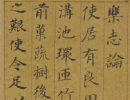 樂志論
使居有良
溝池環匝竹
前菓蔬樹後
之艱使令足